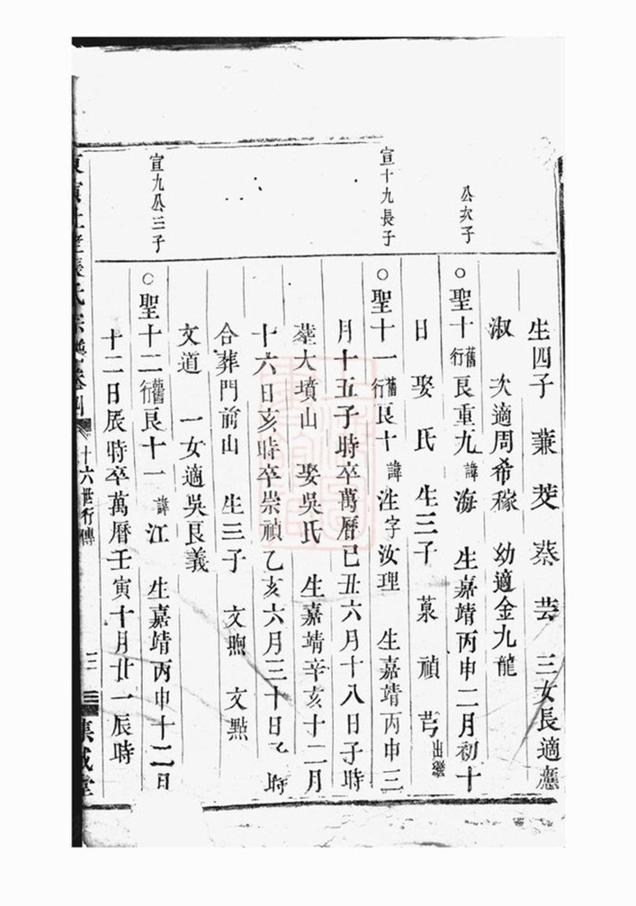 生四子 蒹 茭 蓁 芸 三女長適應
淑 次適周希稼 幼適金九龍
公次子
○聖十舊行良重九諱海 生嘉靖丙申二月初十
日 娶氏 生三子 菓 禎 芎出繼
宣十九長子
○聖十一舊行良十諱泩字汝理 生嘉靖丙申三
月十五子時卒萬曆己丑六月十八日子時
塟大墳山 娶吳氏 生嘉靖辛亥十二月
十六日亥時卒崇禎乙亥六月三十日 時
合葬門前山 生三子 文煦 文點
文道 一女適吳良義
宣九公三子
○聖十二舊行良十一諱江 生嘉靖丙申十二月
十二日辰時卒萬曆壬寅十月廿一辰時
氏宗譜卷 十六世行傳 三 集成堂